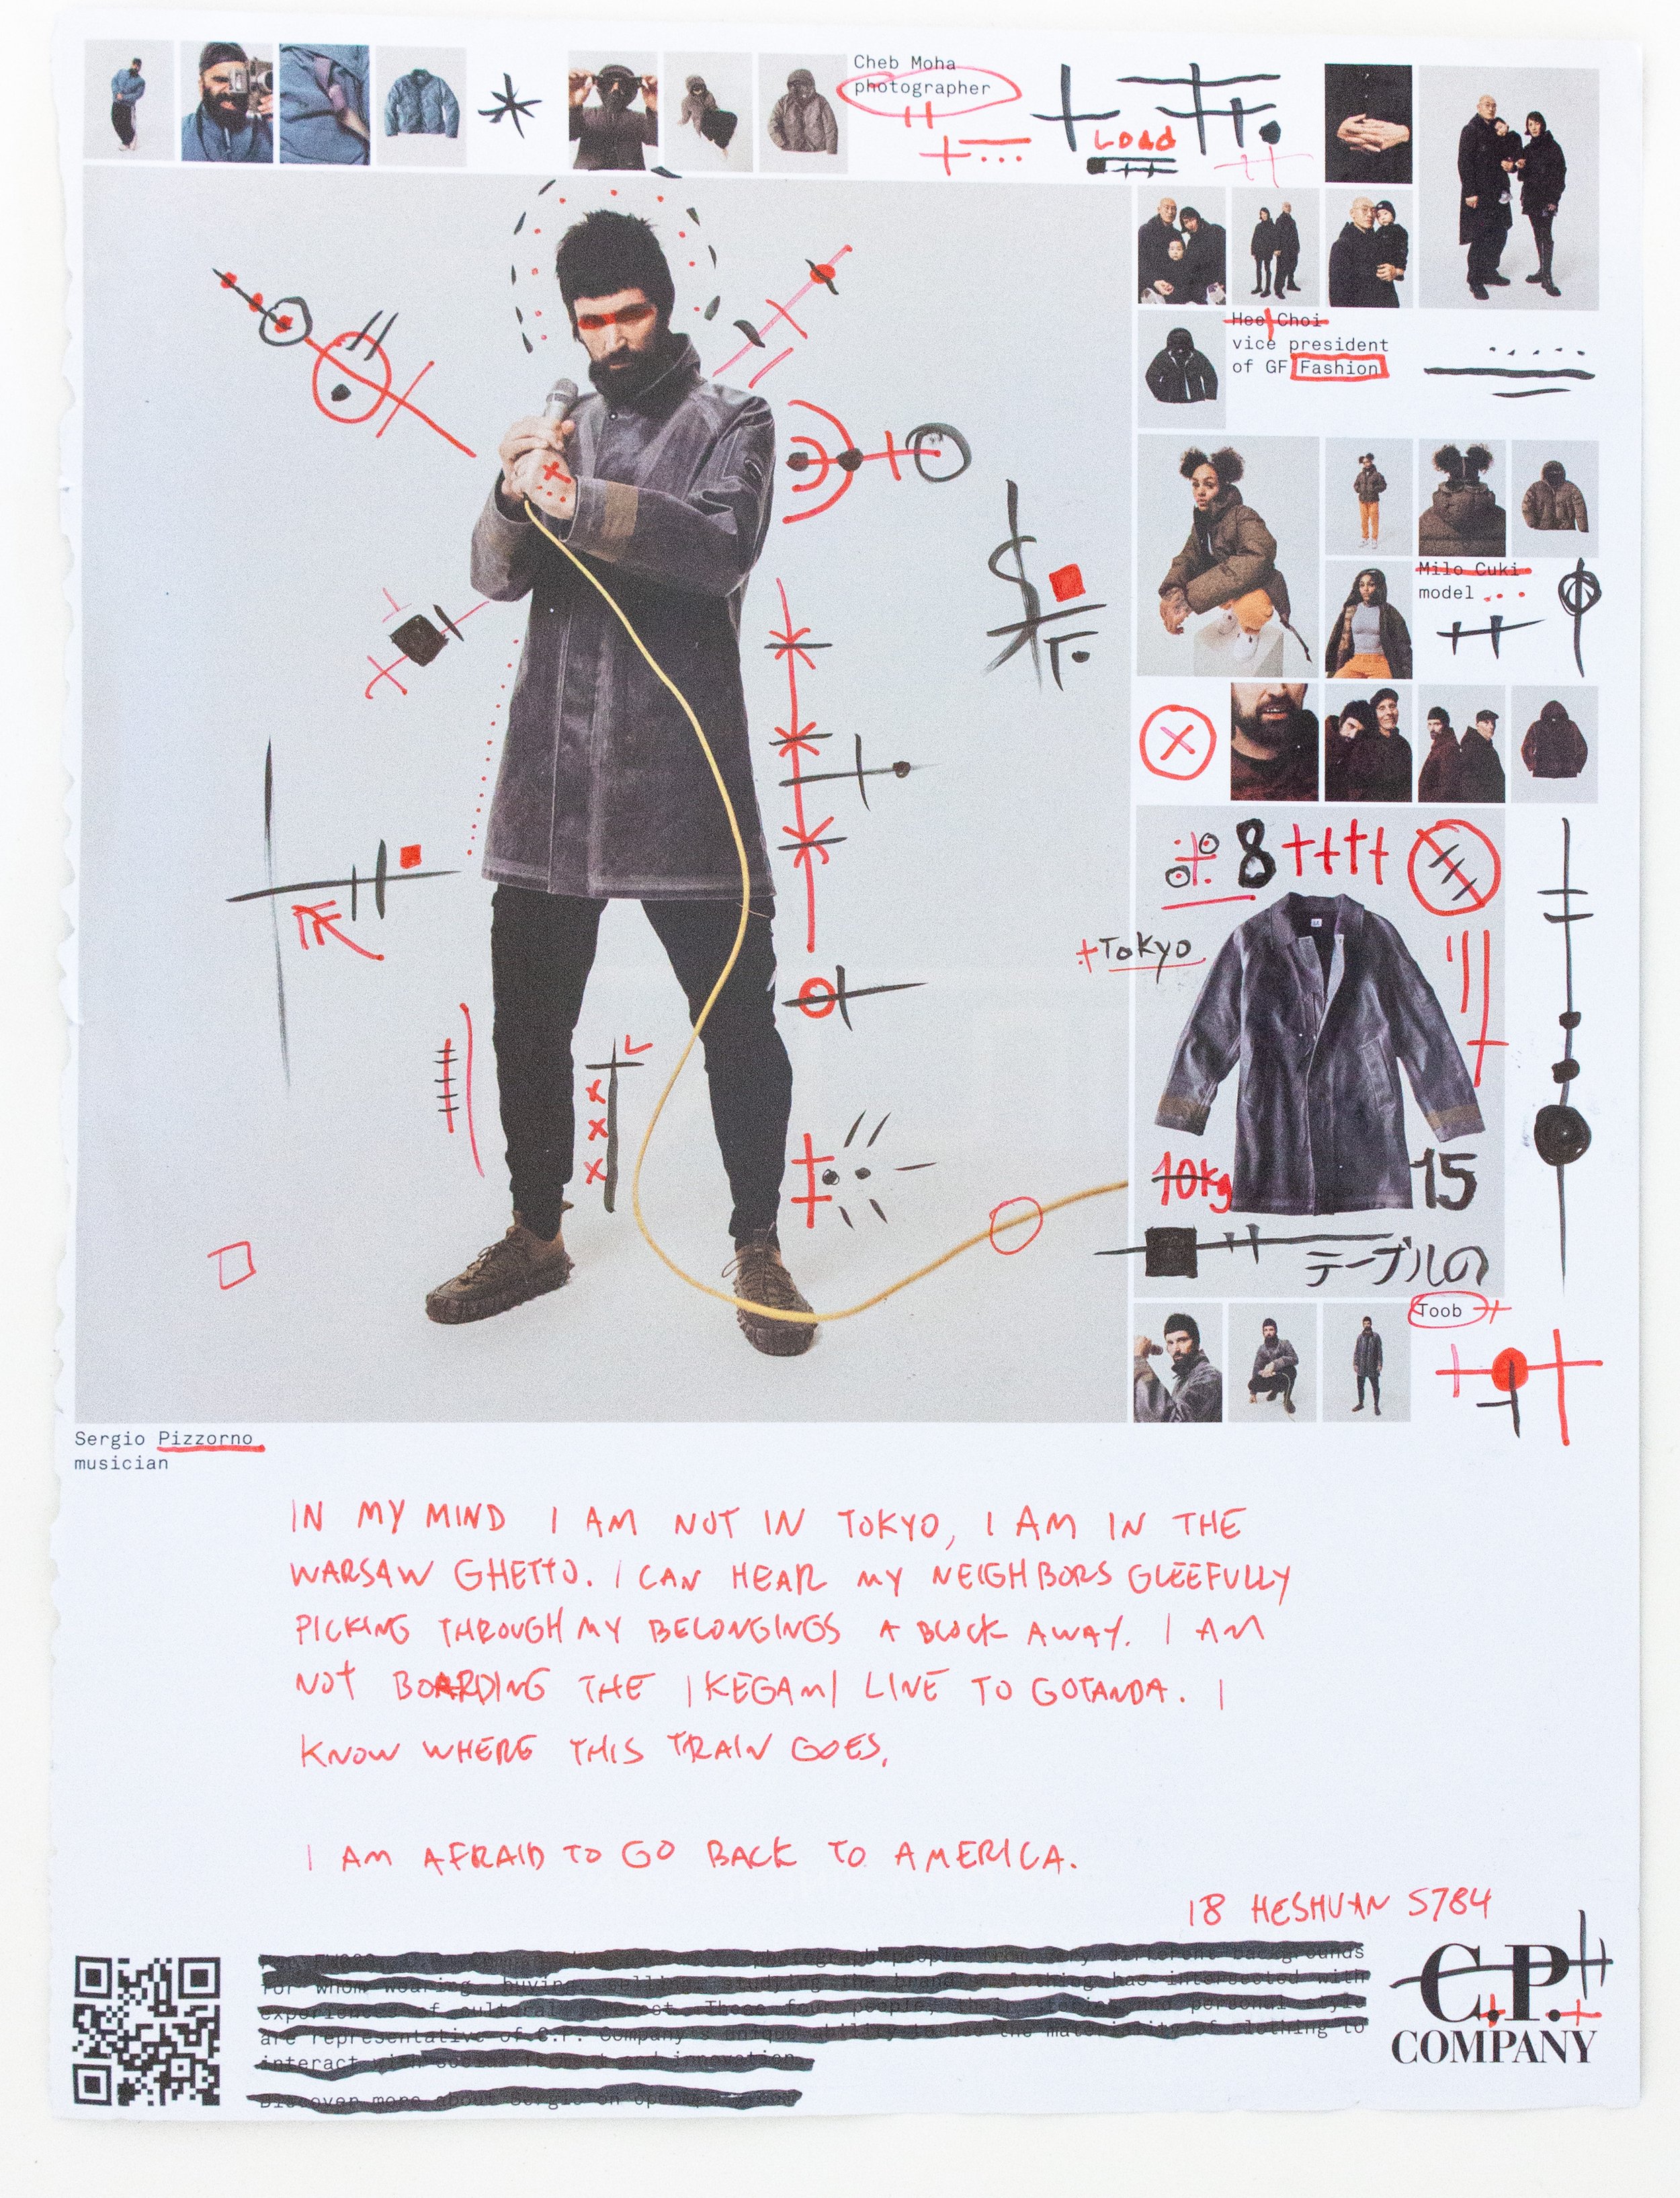 Cheb Moha
photographer
Load
Hee Choi
vice president
of GF Fashion
Milo Cuki
model
8
+Tokyo
10kg
15
テーブルの
Toob
Sergio Pizzorno
musician
IN MY MIND I AM NOT IN TOKYO, I AM IN THE
WARSAW GHETTO. I CAN HEAR MY NEIGHBORS GLEEFULLY
PICKING THROUGH MY BELONGINGS A BLOCK AWAY. I AM
NOT BOARDING THE IKEGAMI LINE TO GOTANDA. I
KNOW WHERE THIS TRAIN GOES.
I AM AFRAID TO GO BACK TO AMERICA.
18 HESHVAN 5784
photograph people from many different backgrounds
for whom wearing, buying, selling, studying the brand's clothing has intersected with
experiences of cultural interest. These four people, their and personal style
are representative of C.P. Company's unique ability to use the materiality of clothing to
interact with social and innovation.
Discover more about Sergio on
C.P.
COMPANY